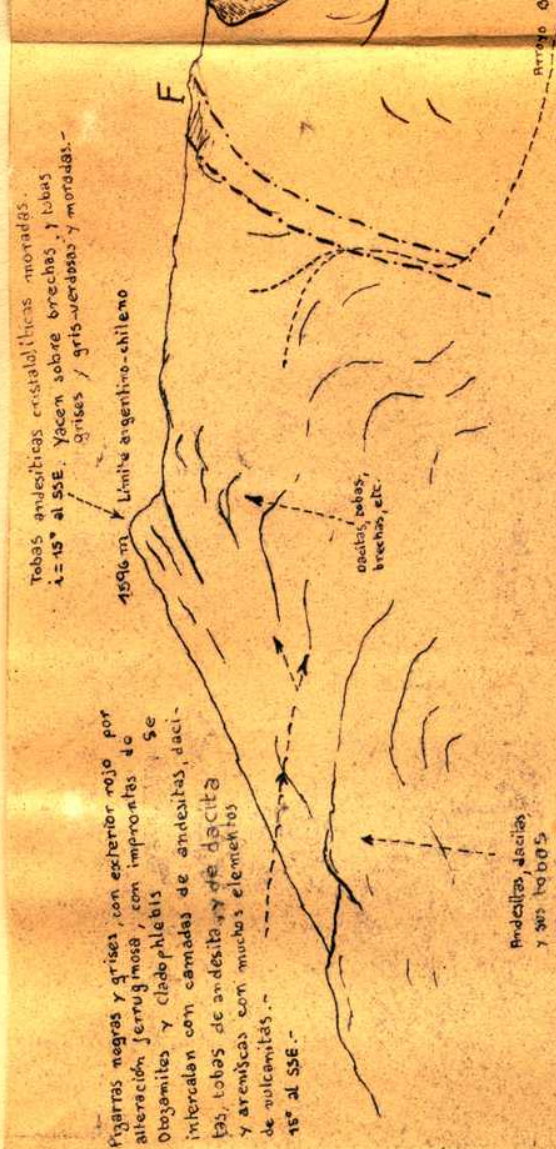 Pizarras negras y grises, con exterior rojo por
alteración ferruginosa, con improntas de
Otozamites y Cladophlebis Se
intercalan con camadas de andesitas, daci-
tas, tobas de andesita, y de dacita
y areniscas con muchos elementos
de vulcanitas.-
15° al SSE.-
Tobas andesíticas cristalolíticas moradas.
i=15° al SSE. Yacen sobre brechas, y tobas
grises / gris-verdosas y moradas.-
1596 m Límite argentino-chileno
F
Dacitas, tobas,
brechas, etc.
Andesitas, dacitas
y sus tobas
Arroyo